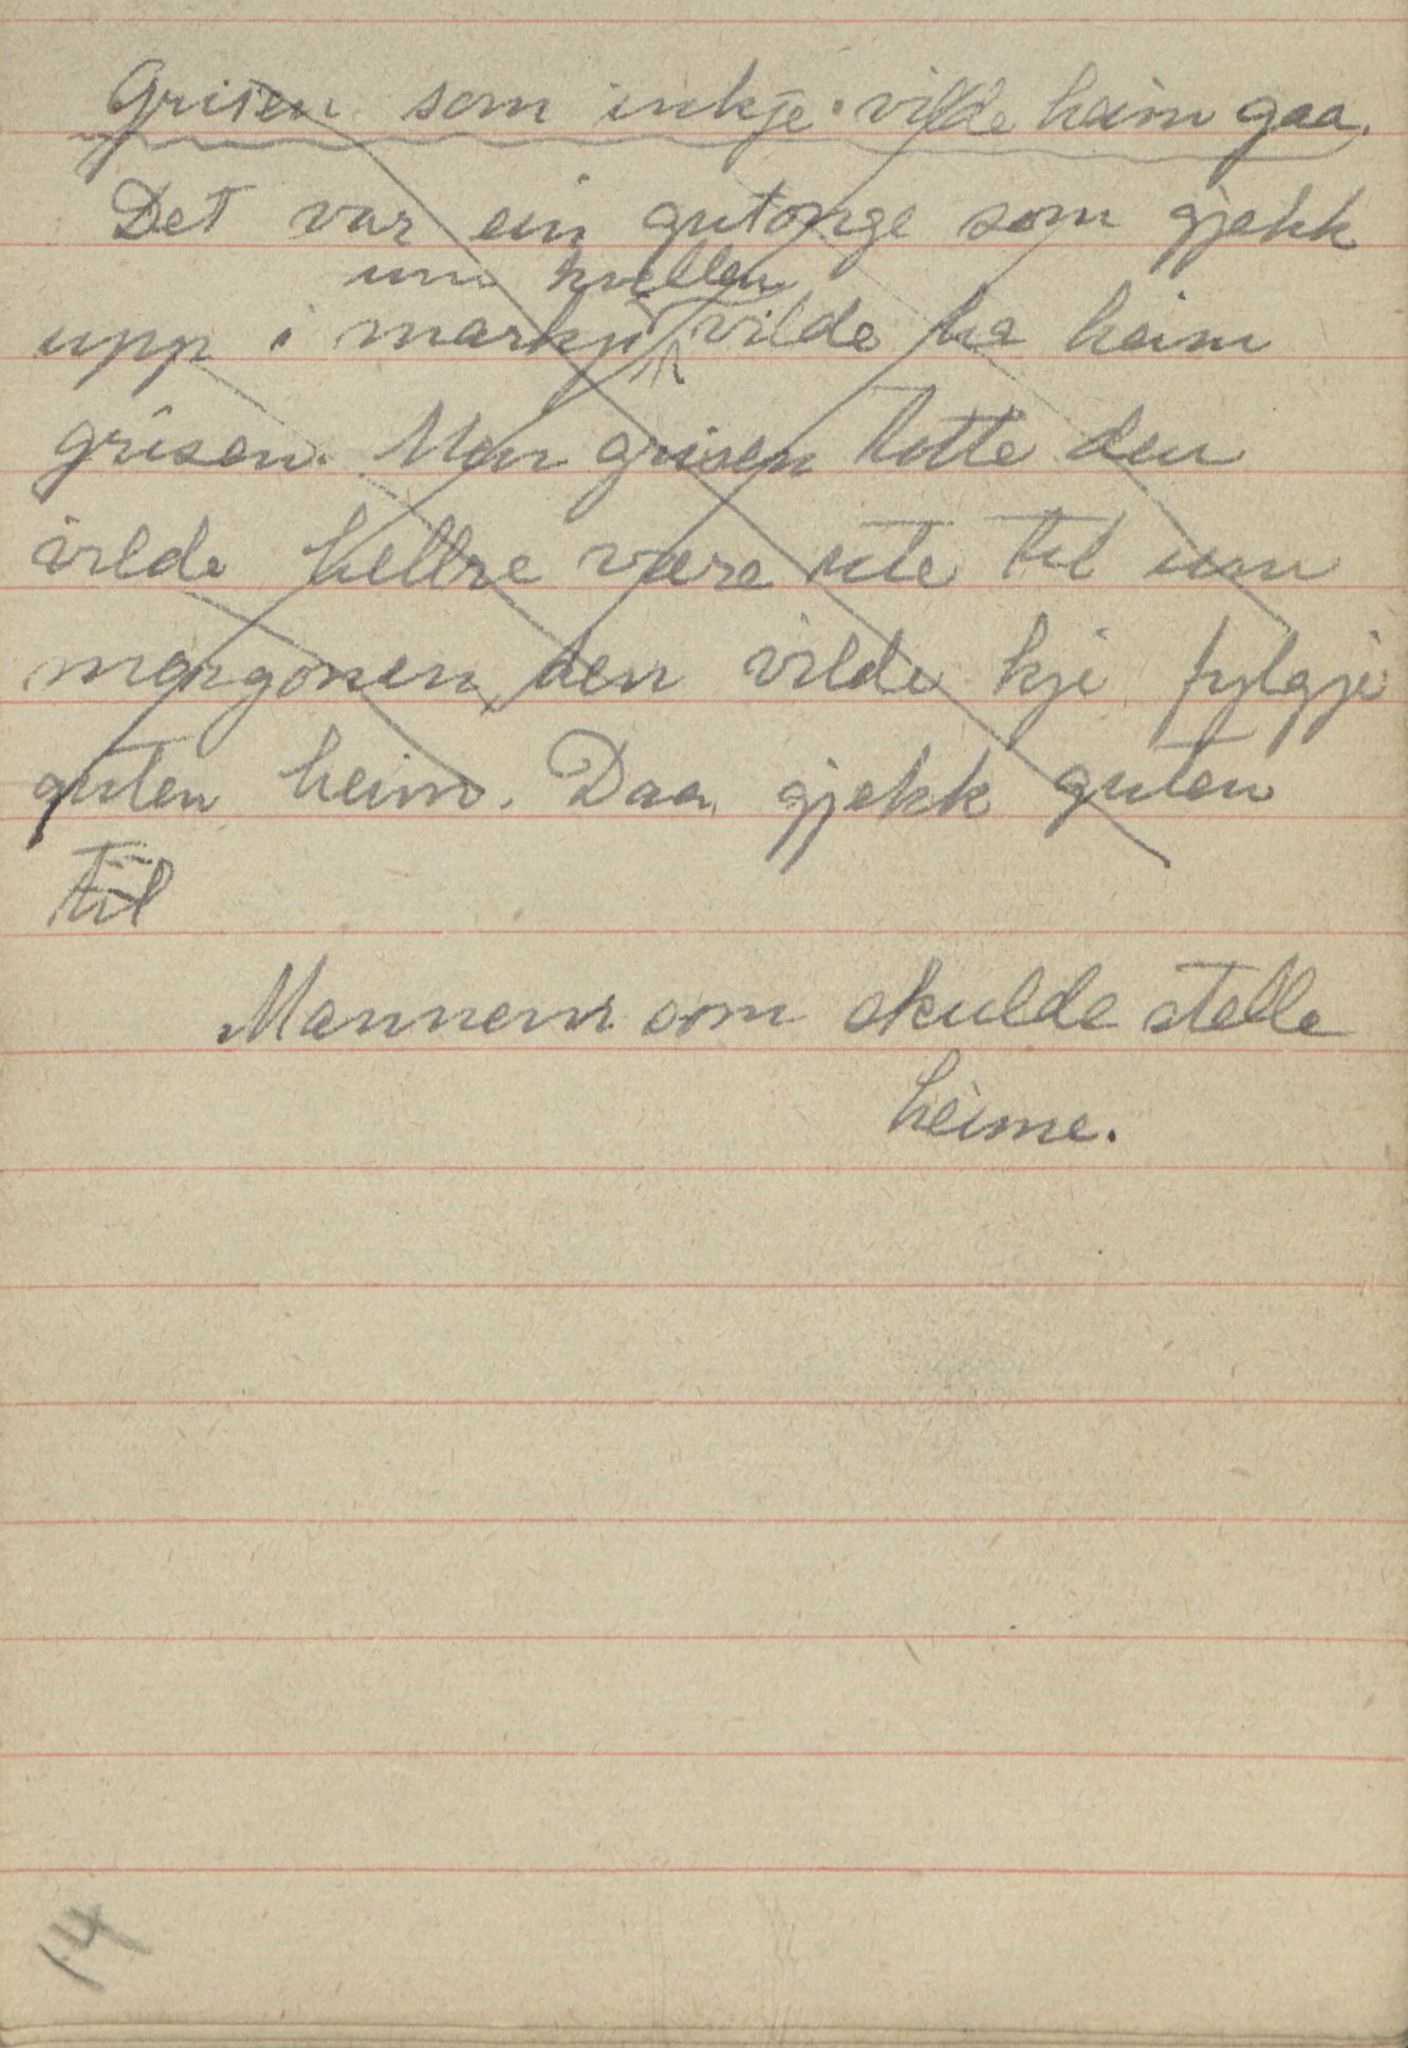 Grisen som inkje vilde heim gaa.
Det var ein gutonge som gjekk
um kvellen
upp i markji vilde ha heim
grisen. Men grisen totte den
vilde hellre være ute til um
morgonen, den vilde kje fylgje
guten heim. Daa gjekk guten
til
Mannem som skulde stelle
heime.
14